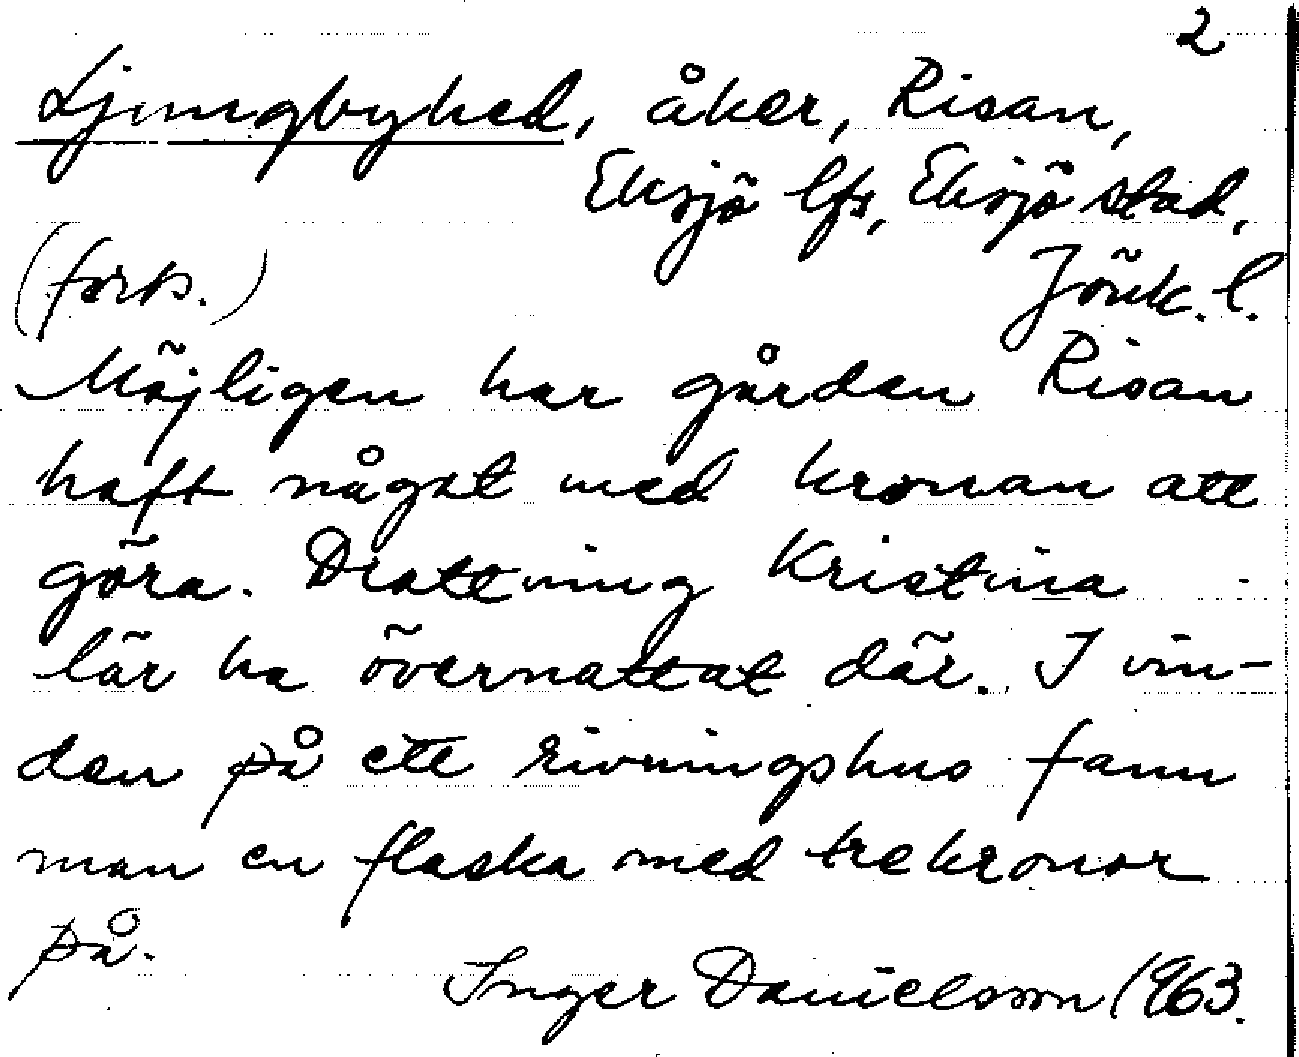 2
Ljungbyhed, åker, Risan,
Eksjö lfs, Eksjö stad,
(forts.)
Jönk. l.
Möjligen har gården Risan
haft något med kronan att
göra. Drottning Kristina
lär ha övernattat där. I vin-
den på ett rivningshus fann
man en flaska med tre kronor
på.
Inger Danielsson 1963.